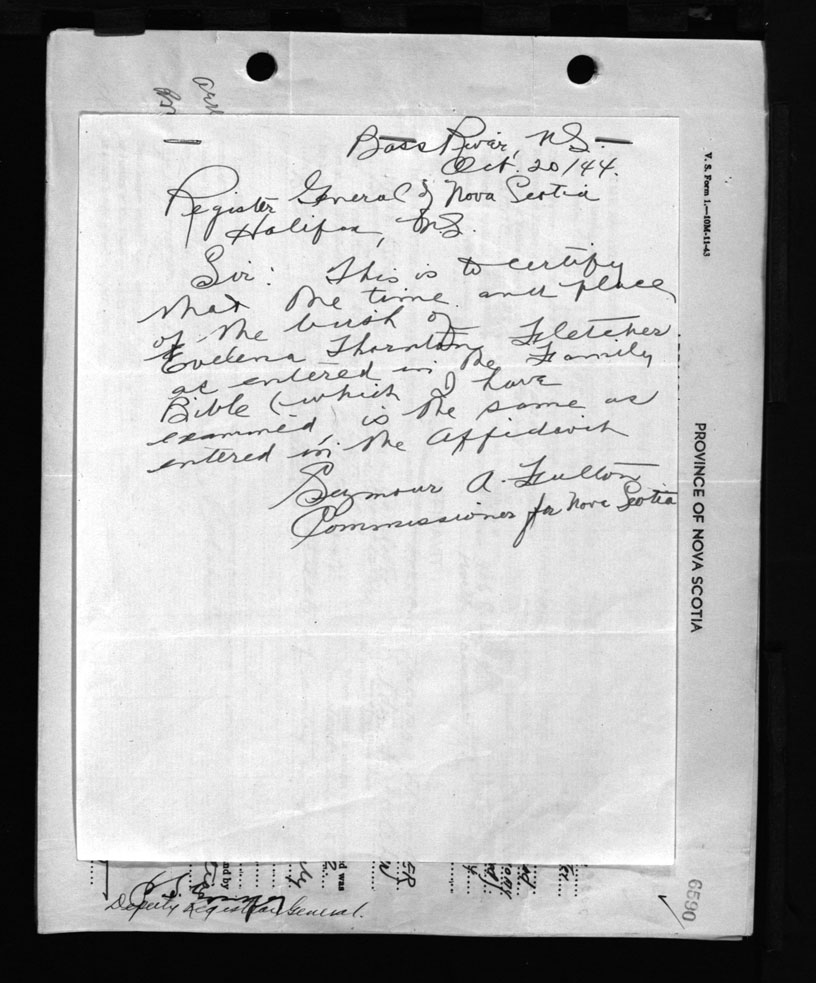 Bass River, N.S.
Oct. 20/44.
Register General of Nova Scotia
Halifax, N.S.
Sir: This is to certify
that the time and place
of the birth of
Evelena Thornton Fletcher
as entered in the Family
Bible (which I have
examined, is the same as
entered in the Affidavit
Seymour A. Fulton
Commissioner for Nova Scotia
V. S. Form 1.—10M-11-43
PROVINCE OF NOVA SCOTIA
6590
d was
nd by
Deputy Registrar General.